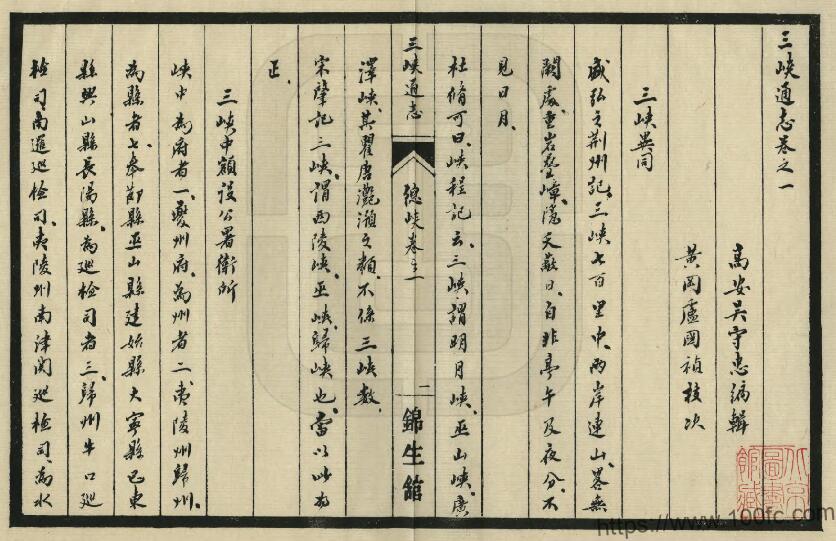 三峽通志卷之一
高安吳守忠編輯
黃岡盧國禎校次
三峽異同
盛弘之荊州記三峽七百里中兩岸連山畧無
闕處重岩疊嶂隱天蔽日自非亭午及夜分不
見日月
杜脩可曰峽程記云三峽謂明月峽巫山峽廣
三峽通志 總峽卷之一 二 錦生舘
澤峽其瞿唐灔澦之類不係三峽數
宋肇記三峽謂西陵峽巫峽歸峽也當以此為
正
三峽中額設公署衛所
峽中為府者一夔州府為州者二夷陵州歸州
為縣者七奉節縣巫山縣建始縣大寧縣巴東
縣興山縣長陽縣為巡檢司者三歸州牛口巡
檢司南邏巡檢司夷陵州南津関巡檢司為水
北京圖書館藏
https://www.100fc.com